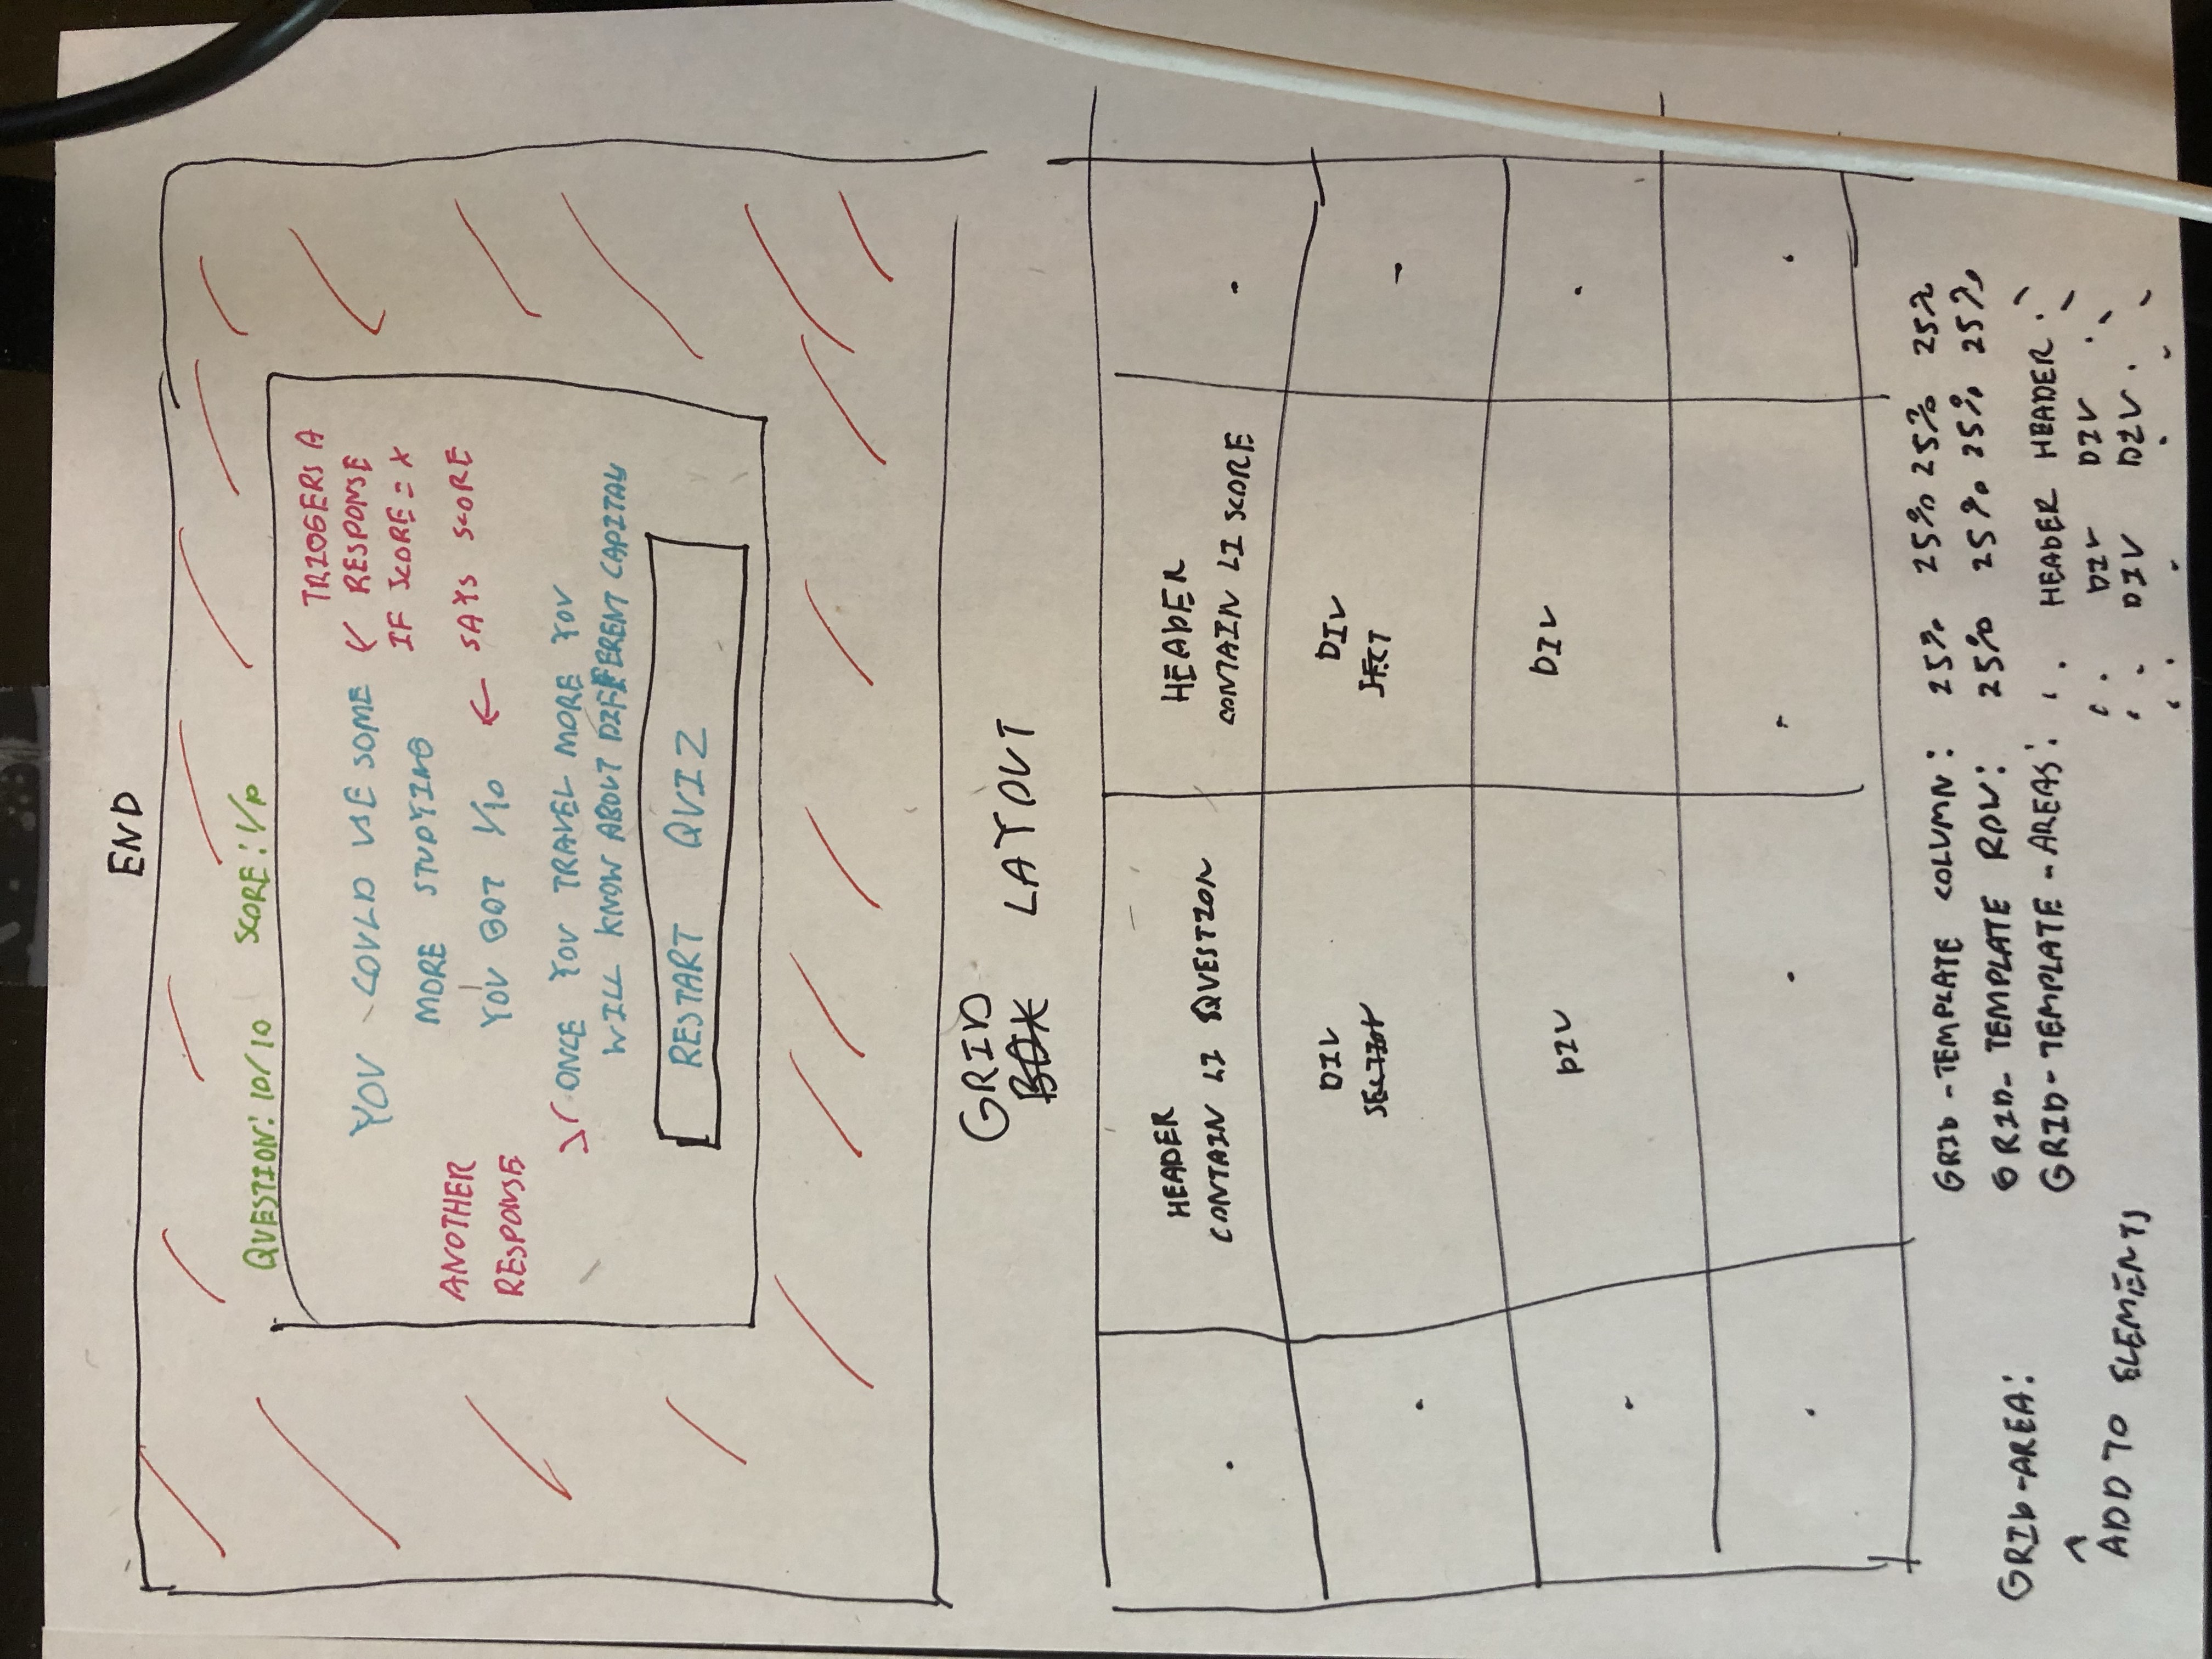 END
QUESTION: 10/10 SCORE: 1/10
TRIGGERS A
YOU COULD USE SOME RESPONSE
IF SCORE = X
MORE STUDYING
ANOTHER
RESPONSE
YOU GOT 1/10 ← SAYS SCORE
ONCE YOU TRAVEL MORE YOU
WILL KNOW ABOUT DIFFERENT CAPITALS
RESTART QUIZ
GRID
BOX LAYOUT
HEADER
CONTAIN LI QUESTION
HEADER
CONTAIN LI SCORE
.
.
DIV
SECTION
DIV
SECT
.
.
DIV
DIV
.
.
.
.
.
.
GRID-TEMPLATE COLUMN: 25% 25% 25% 25%
GRID-TEMPLATE ROW: 25% 25% 25% 25%
GRID-TEMPLATE-AREAS: ' . HEADER HEADER . '
' . DIV DIV . '
' . DIV DIV . '
' . . . .
GRID-AREA:
^
ADD TO ELEMENTS